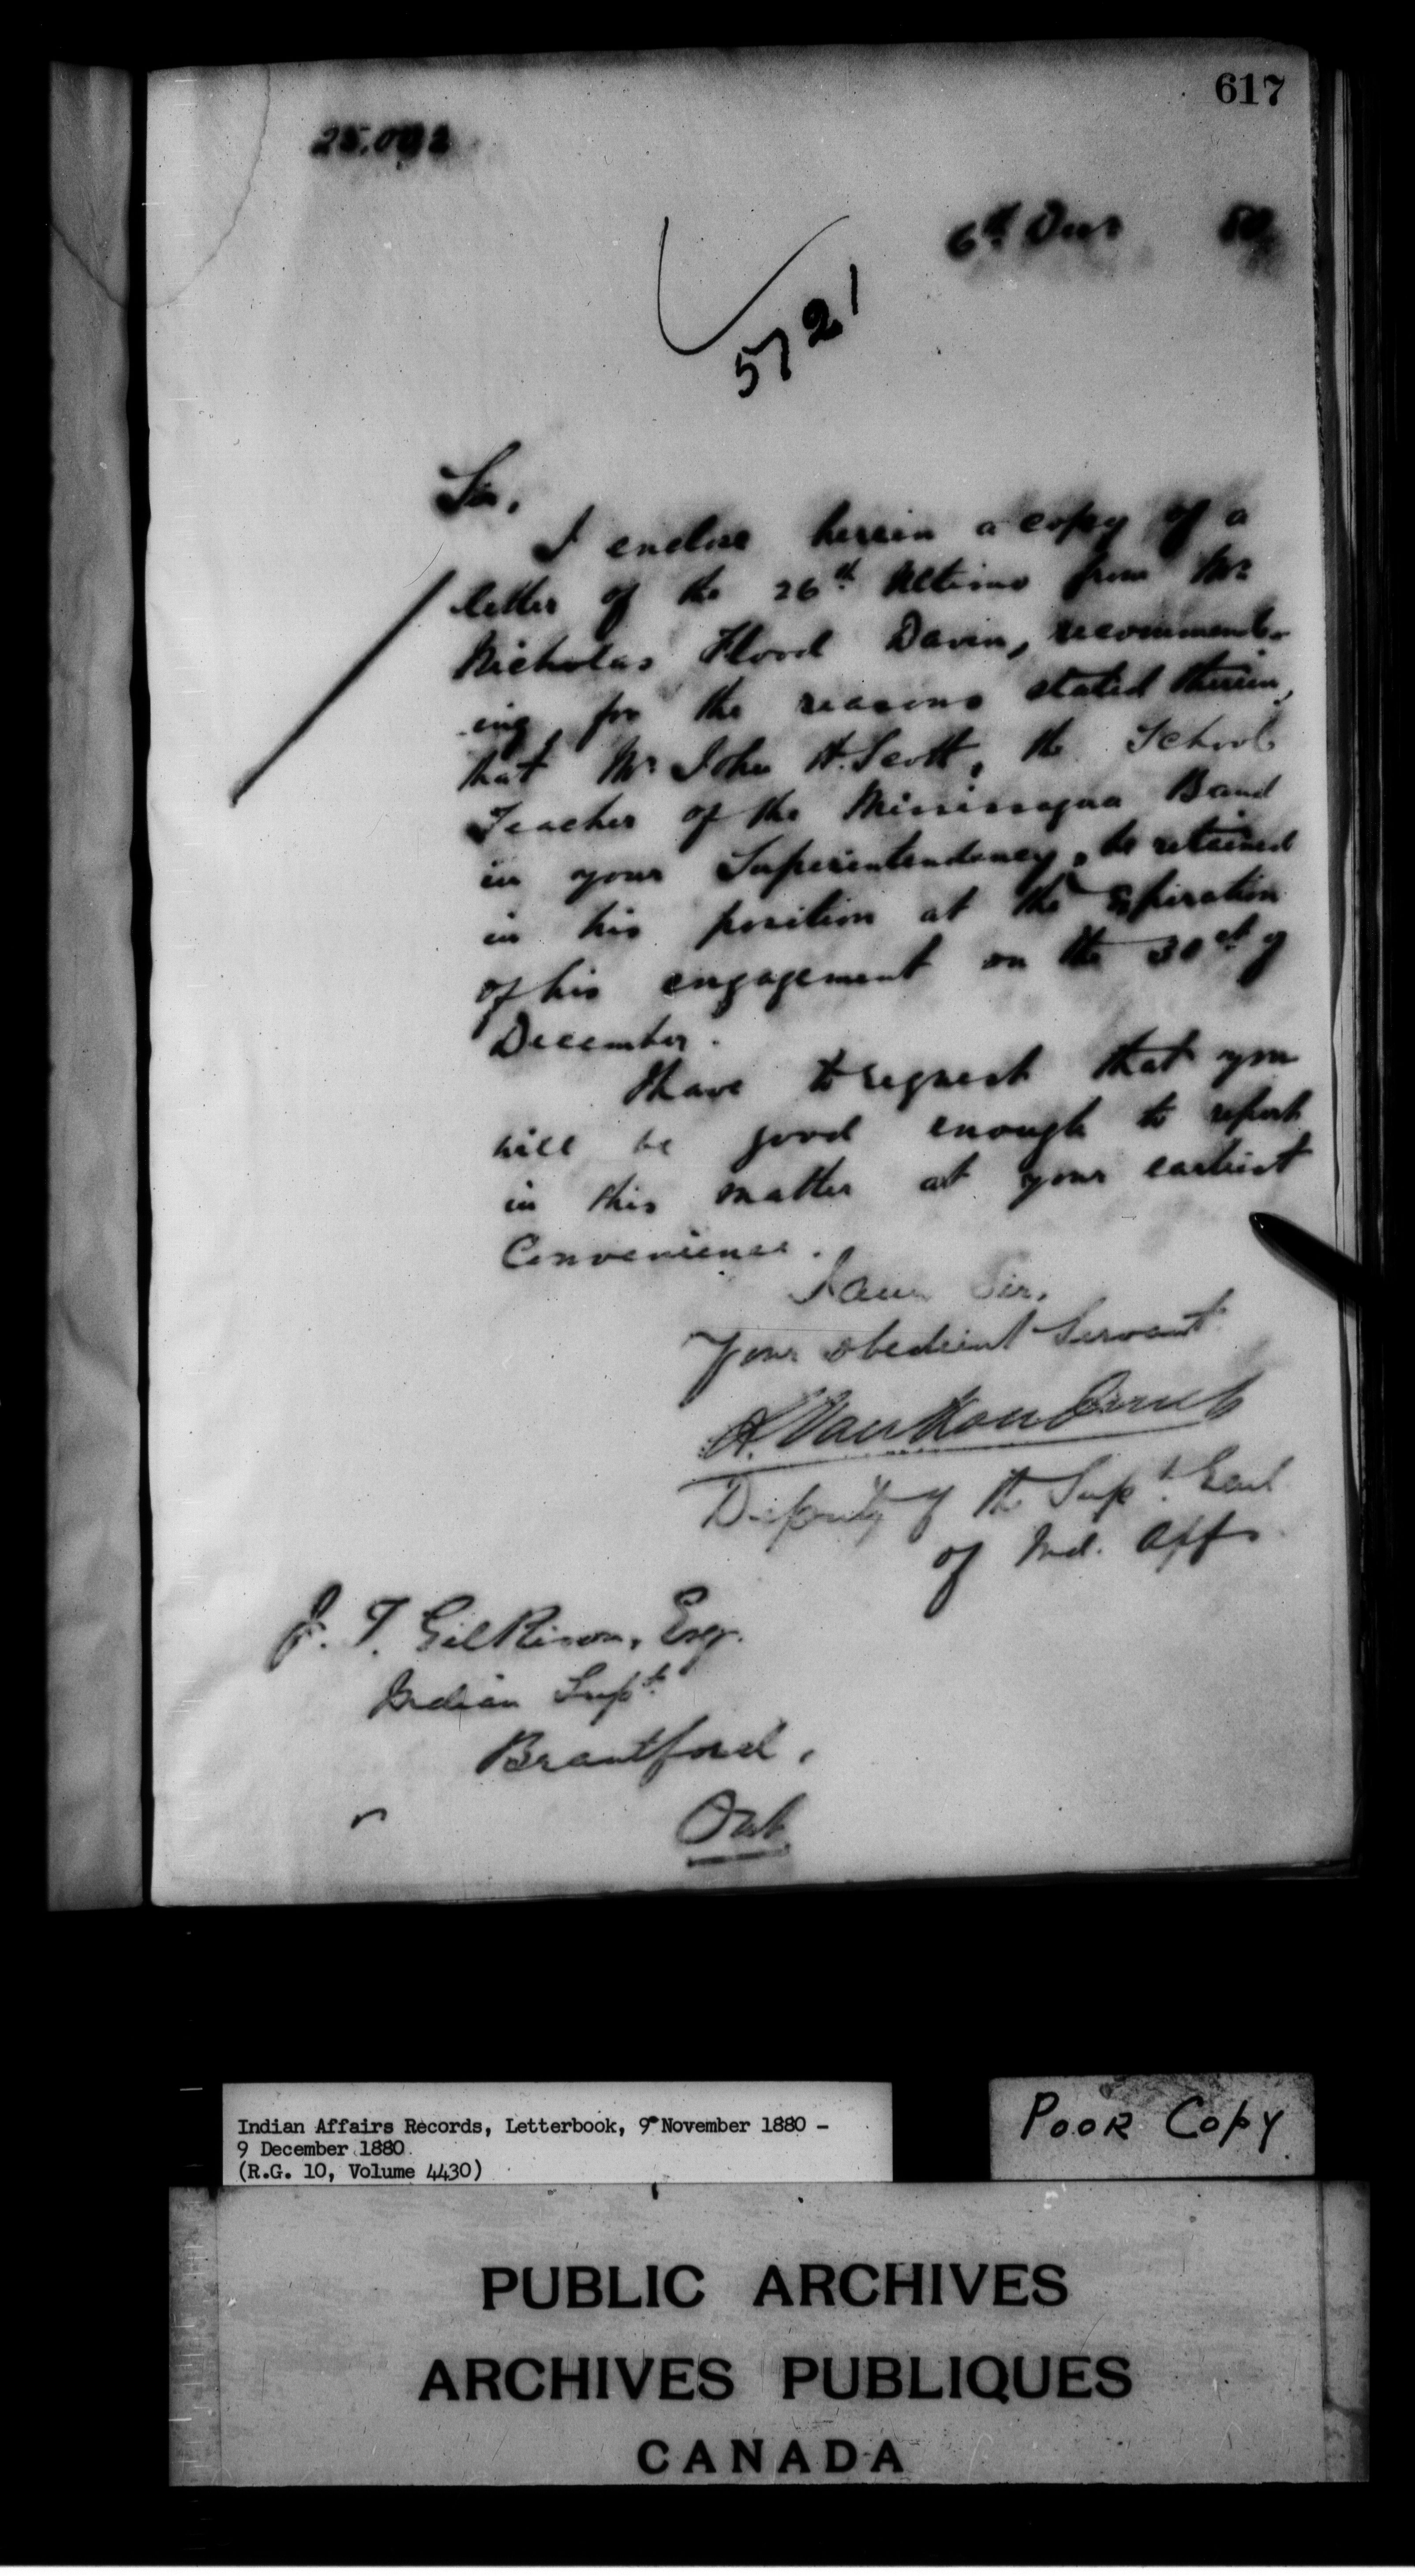 617
25,092
6th Decr 80
5721
Sir,
I enclose herein a copy of a
letter of the 26th Ultimo from Mr
Nicholas Flood Davin, recommend-
-ing for the reasons stated therein,
that Mr John H. Scott, the School
Teacher of the Mississagua Band
in your Superintendency, be retained
in his position at the expiration
of his engagement on the 30st of
December.
I have to request that you
will be good enough to report
in this matter at your earliest
Convenience.
I am Sir,
Your obedient Servant
L. VanKoughnet
Deputy of the Supt. Genl
of Ind. Affs
J. T. Gilkison, Esqr.
Indian Supt.
Brantford,
Ont
Indian Affairs Records, Letterbook, 9 November 1880 -
9 December 1880
(R.G. 10, Volume 4430)
POOR COPY
PUBLIC ARCHIVES
ARCHIVES PUBLIQUES
CANADA